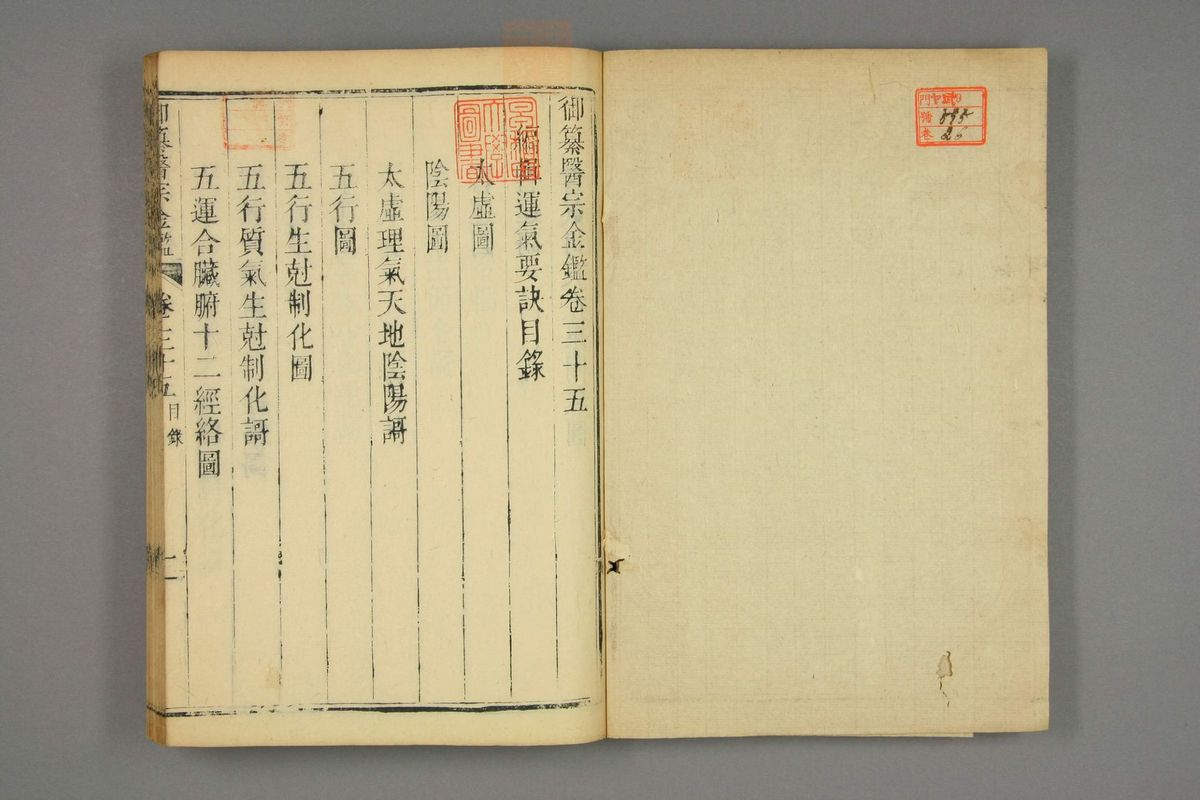 御纂醫宗金鑑卷三十五
編輯運氣要訣目錄
太虛圖
陰陽圖
太虛理氣天地陰陽謌
五行圖
五行生尅制化圖
五行質氣生尅制化謌
五運合臟腑十二經絡圖
御纂醫宗金鑑
卷三十五
目錄
一